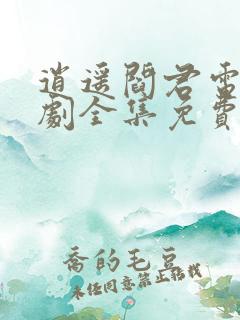 逍遥閻君電
劇全集免費
喬的毛豆
未经同意禁止搭我